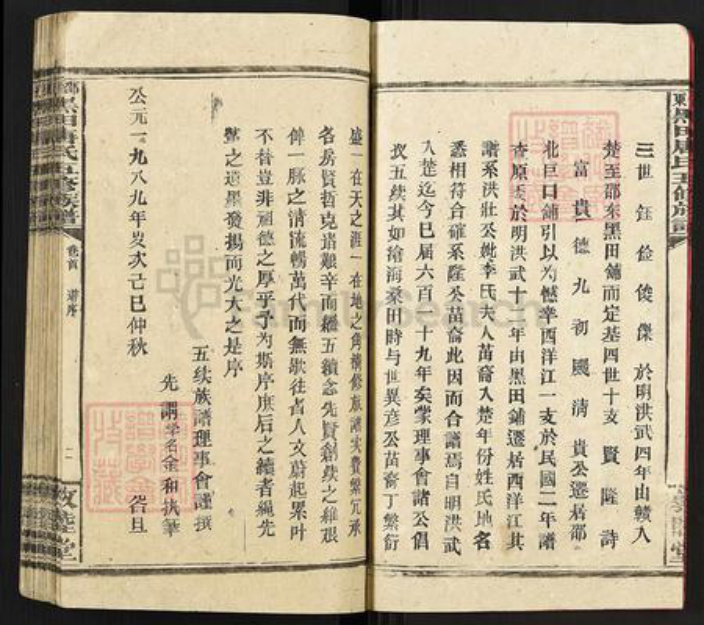 三世 鈺 儉 俊 傑 於明洪武四年由贛入
楚至邵东黑田鋪而定基四世十支 賢 隆 詩
富 貴 德 九 初 颺 清 貴公遷居邵
北巨口鋪引以为憾幸西洋江一支於民國二年譜
查原委於明洪武十二年由黑田鋪遷居西洋江其
譜系洪壯公妣李氏夫人苗裔入楚年份姓氏地名
悉相符合確系隆公苗裔此因而合譜焉自明洪武
入楚迄今已届六百一十九年矣蒙理事會諸公倡
议五续其如滄海桑田時与世異彦公苗裔丁繁衍
盛一在天之涯一在地之角補修族譜实費繁冗承
各房賢哲克遒艱辛而繼五續念先賢創续之維艰
俾一脉之清流暢萬代而無歇往者人文蔚起累叶
不替豈非祖德之厚乎予为斯序庶后之續者繩先
之遺墨發揚而光大之是序
五续族譜理事會謹撰
先謂学名金和执筆
公元一九八九年岁次己巳仲秋 旦
黑田唐氏五修族譜
卷首 譜序
二
堂
FamilySearch